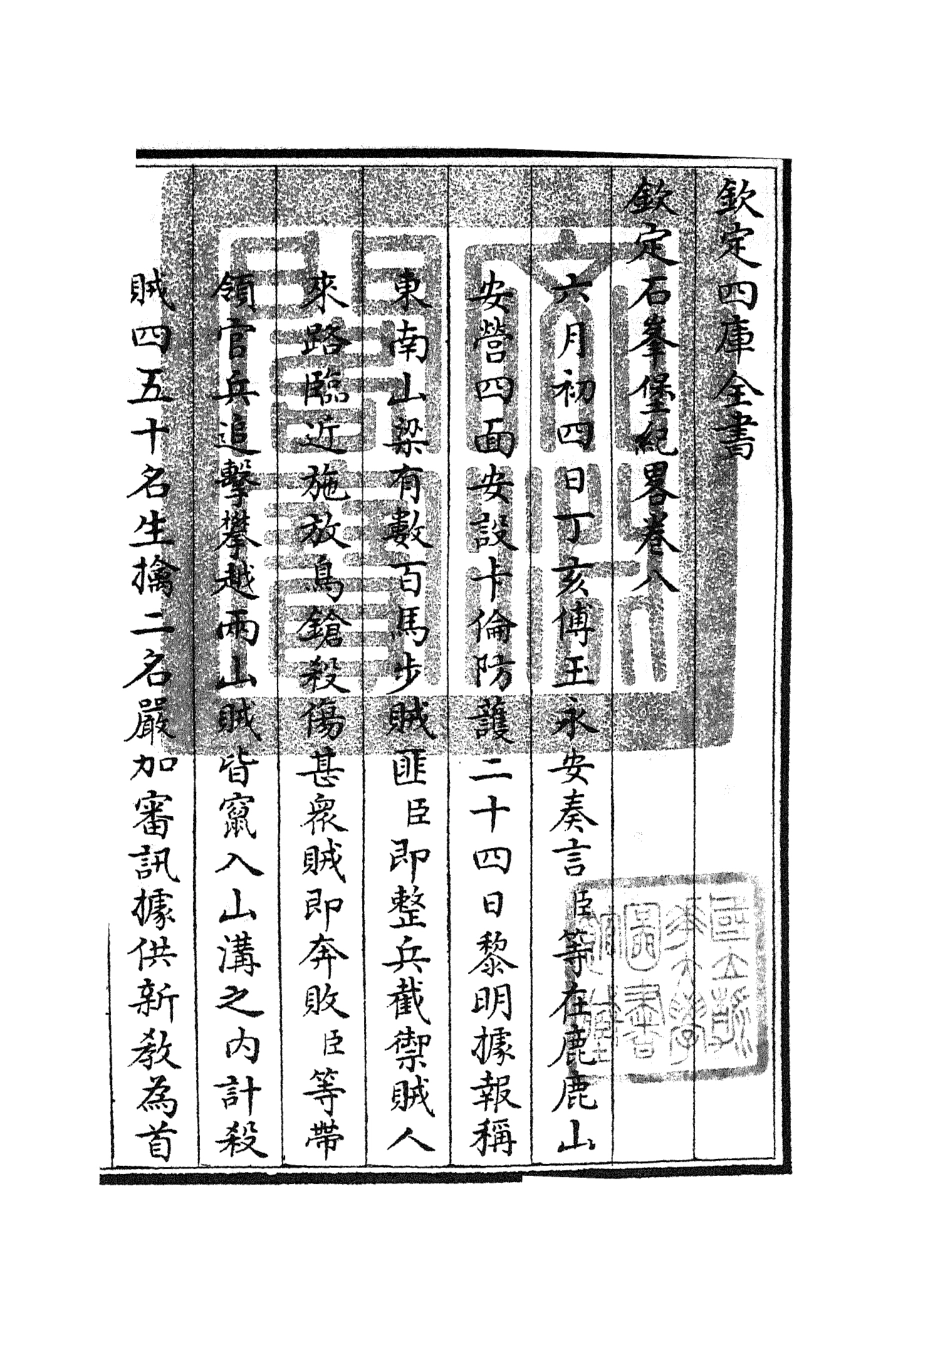 欽定四庫全書
欽定石峯堡紀畧卷八
六月初四日丁亥傅玉永安奏言臣等在鹿鹿山
安營四面安設卡倫防護二十四日黎明據報稱
東南山梁有數百馬步賊匪臣即整兵截禦賊人
來路臨近施放鳥鎗殺傷甚衆賊即奔敗臣等帶
領官兵追擊攀越兩山賊皆竄入山溝之內計殺
賊四五十名生擒二名嚴加審訊據供新教為首